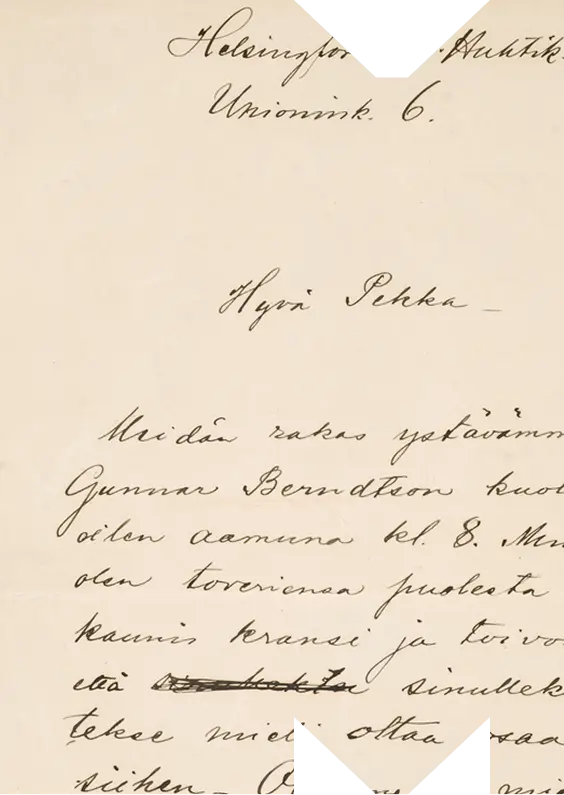 Helsingfor Huhtik.
Unionink. 6.
Hyvä Pekka –
Meidän rakas ystävämm
Gunnar Berndtson kuol
eilen aamuna kl. 8.
olen toveriensa puolesta
kaunis kransi ja toivo
että sinullek
tekse mieli ottaa osaa
siihen –